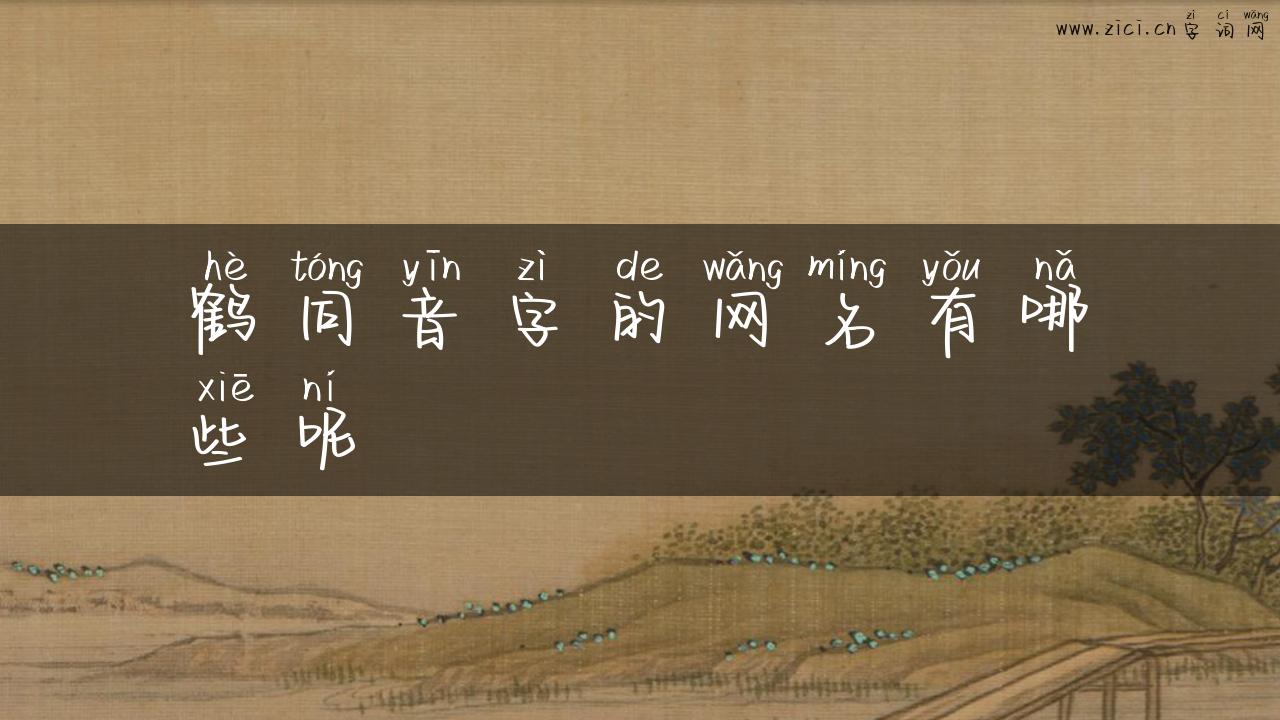 zì cí wǎng
www.zici.cn字词网
hè tóng yīn zì de wǎng míng yǒu nǎ
鹤同音字的网名有哪
xiē ní
些呢